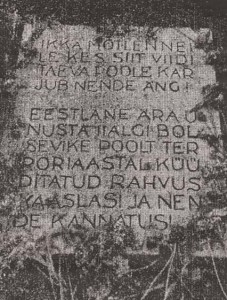 IKKA MÕTLEN NEI
LE KES SIIT VIIDI
TAEVA POOLE KAR
JUB NENDE ÄNG!
EESTLANE ÄRA U
NUSTA IIALGI BOL
SEVIKE POOLT TER
RORIAASTAL KÜÜ
DITATUD RAHVUS
KAASLASI JA NEN
DE KANNATUSI